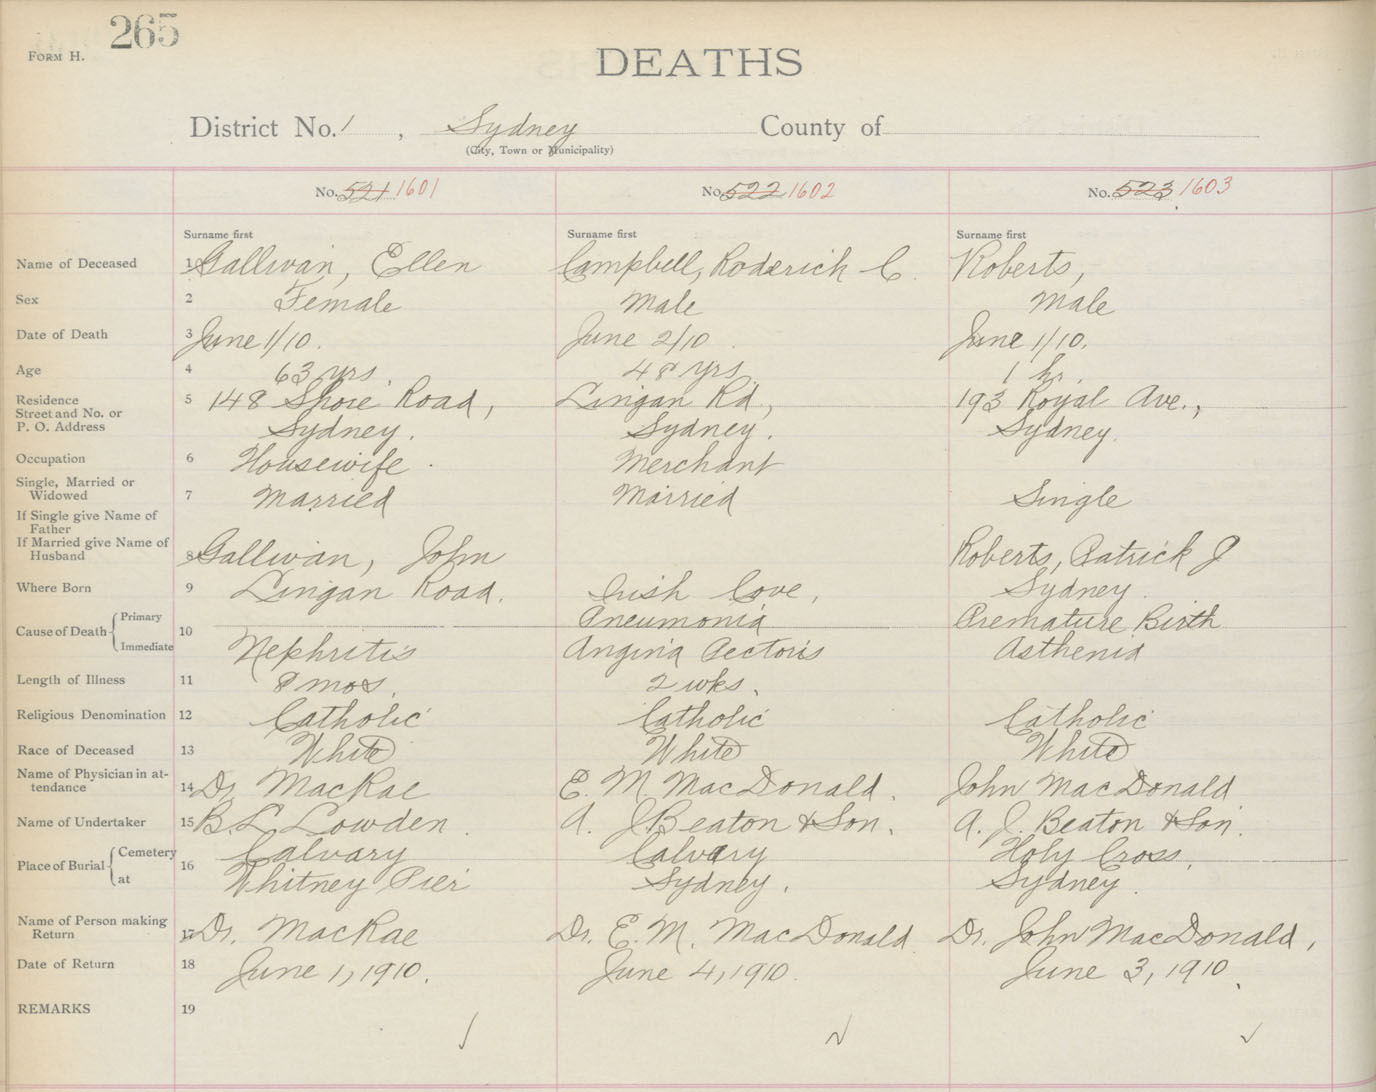 265
FORM H.
DEATHS
District No. 1, Sydney County of
(City, Town or Municipality)
No. 521 1601 No. 522 1602 No. 523 1603
Surname first Surname first Surname first
Name of Deceased 1 Gallivan, Ellen Campbell, Roderick C. Roberts,
Sex 2 Female Male Male
Date of Death 3 June 1/10. June 2/10. June 1/10.
Age 4 63 yrs. 48 yrs 1 hr.
Residence 5 148 Shore Road, Lingan Rd, 193 Royal Ave.,
Street and No. or
P. O. Address Sydney. Sydney. Sydney.
Occupation 6 Housewife. Merchant
Single, Married or
Widowed 7 Married Married Single
If Single give Name of
Father
If Married give Name of
Husband 8 Gallivan, John Roberts, Patrick J
Where Born 9 Lingan Road. Irish Cove, Sydney.
Cause of Death Primary Pneumonia Premature Birth
10
Immediate Nephritis Angina Pectoris Asthenia
Length of Illness 11 8 mos. 2 wks.
Religious Denomination 12 Catholic Catholic Catholic
Race of Deceased 13 White White White
Name of Physician in at-
tendance 14 Dr. MacRae E. M. MacDonald. John MacDonald
Name of Undertaker 15 B. L. Lowden. A. J. Beaton & Son. A. J. Beaton & Son.
Place of Burial Cemetery 16 Calvary Calvary Holy Cross.
at Whitney Pier Sydney. Sydney.
Name of Person making
Return 17 Dr. MacRae Dr. E. M. MacDonald Dr. John MacDonald,
Date of Return 18 June 1, 1910. June 4, 1910. June 3, 1910.
REMARKS 19